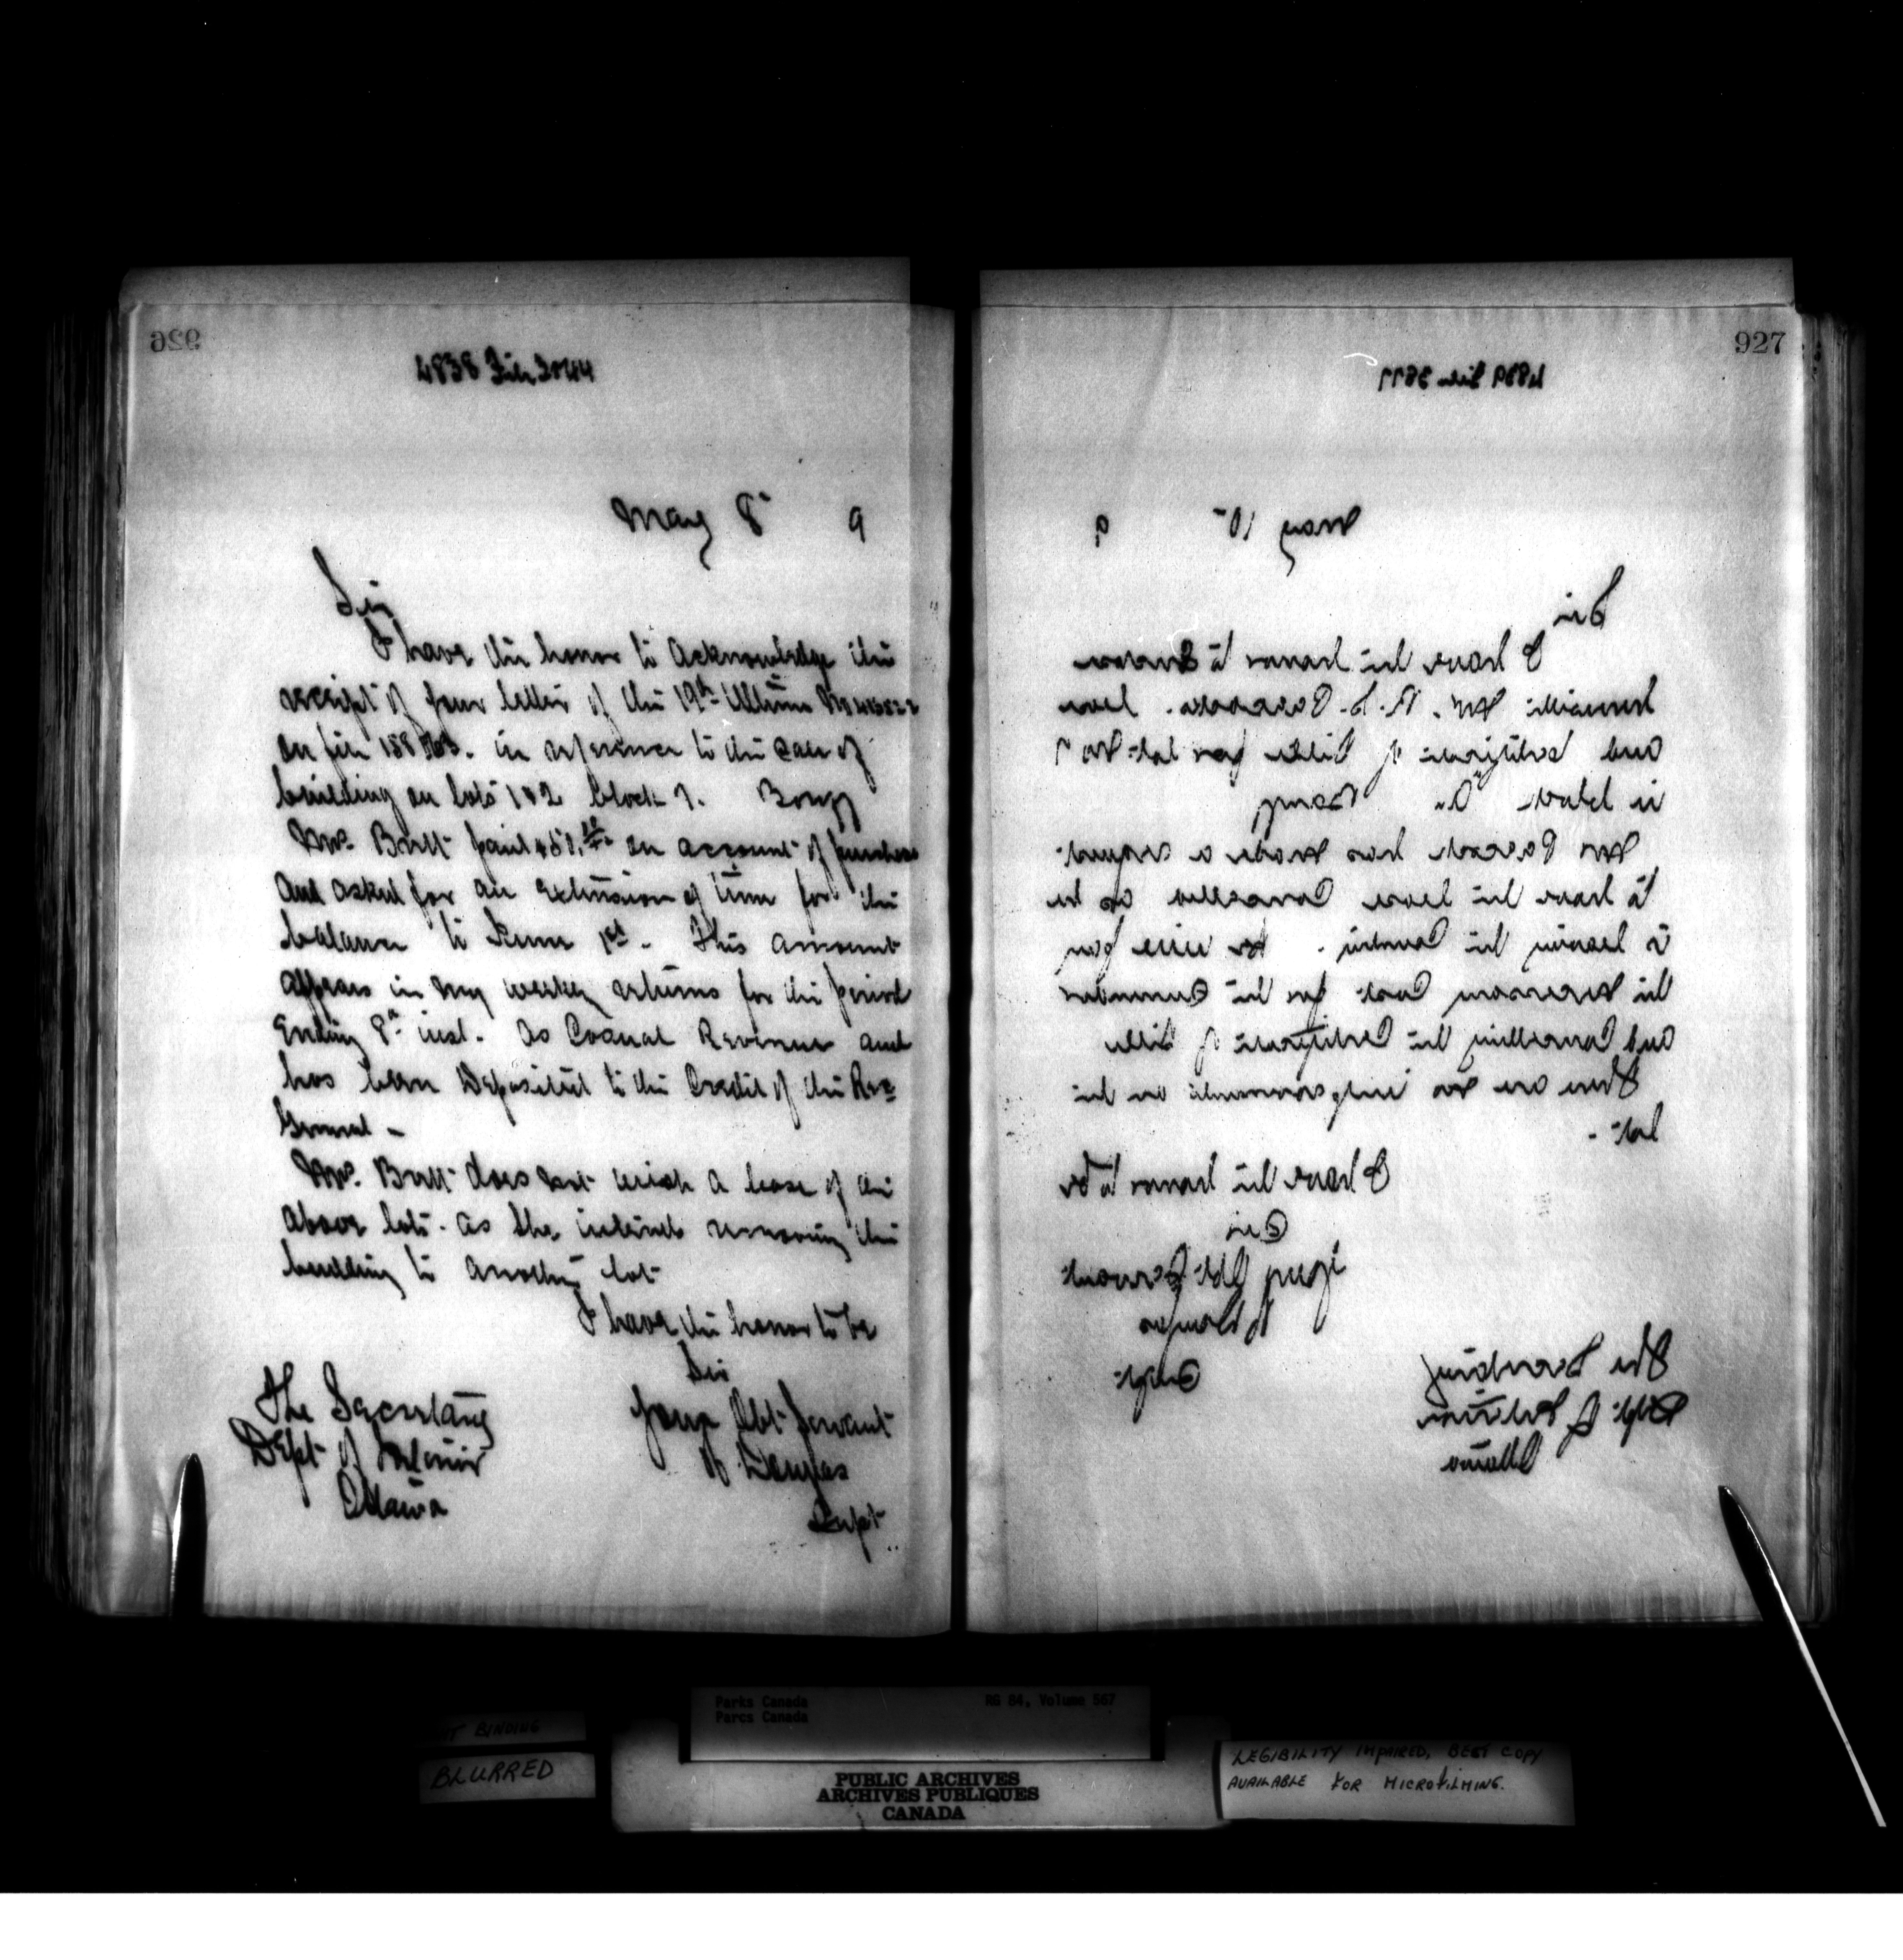 926
4838 File 2044
May 8th 9
Sir
I have the honor to acknowledge the
receipt of your letter of the 19th Ultimo No
on file in reference to the Sale of
building on lots 1 & 2 block 7. Banff
Mrs. Brett paid on account of purchase
and asked for an extension of time for the
balance to June 1st. This amount
appears in my weekly returns for the period
Ending 8th inst. as Casual Revenue and
has been Deposited to the Credit of the Rec
General -
Mrs. Brett does not wish a lease of the
above lots. as She intends removing the
building to another lot
I have the honor to be
Sir
Your Obt Servant
H Douglas
Supt
The Secretary
Dept of Interior
Ottawa
927
4839 File 3677
May 10th 9
Sir
I have the honor to Enclose
herewith Mr. Lease
and certificate of Title for lot No 7
in block Banff
Mr has made a request
to have the lease Cancelled as he
is leaving the Country. He will pay
the necessary Cost for the
and Cancelling the Certificate of Title
There are no improvements on the
lot -
I have the honor to be
Sir
Your Obt Servant
H Douglas
Supt
The Secretary
Dept of Interior
Ottawa
Parks Canada
Parcs Canada
RG 84, Volume 567
BINDING
BLURRED
PUBLIC ARCHIVES
ARCHIVES PUBLIQUES
CANADA
LEGIBILITY IMPAIRED, BEST COPY
AVAILABLE FOR MICROFILMING.